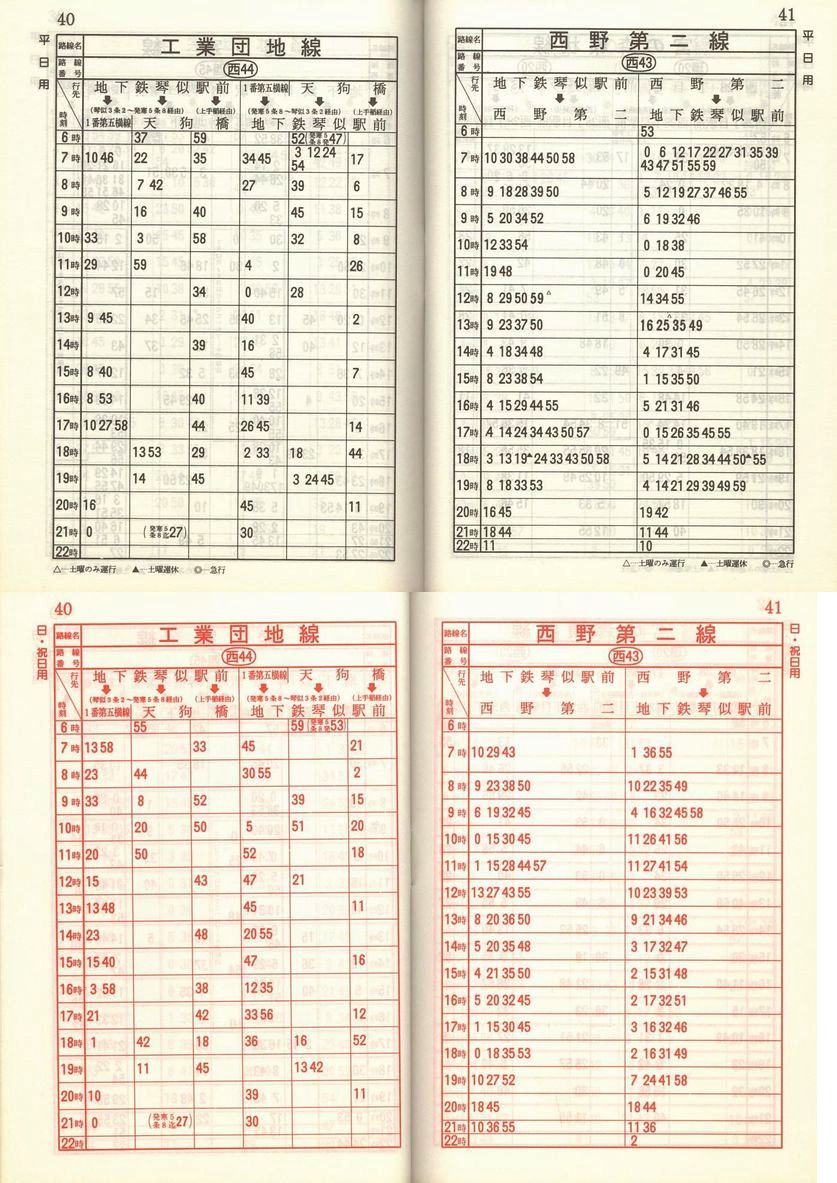 40
平日用
路線名 工業団地線
路線番号 西44
行先 地下鉄琴似駅前 1番第五横線 天狗橋
(琴似3条2～発寒5条8経由) (上手稲経由) (発寒5条8～琴似3条2経由) (上手稲経由)
時刻 1番第五横線 天狗橋 地下鉄琴似駅前
6時 37 59 52(発寒5条8発47)
7時 10 46 22 35 34 45 3 12 24 54 17
8時 7 42 27 39 6
9時 16 40 45 15
10時 33 3 58 32 8
11時 29 59 4 26
12時 34 0 28
13時 9 45 40 2
14時 39 16
15時 8 40 45 7
16時 8 53 40 11 39
17時 10 27 58 44 26 45 14
18時 13 53 29 2 33 18 44
19時 14 45 3 24 45
20時 16 45 11
21時 0 (発寒5条8迄27) 30
22時
△…土曜のみ運行 ▲…土曜運休 ◎…急行
41
平日用
路線名 西野第二線
路線番号 西43
行先 地下鉄琴似駅前 西野第二
時刻 西野第二 地下鉄琴似駅前
6時 53
7時 10 30 38 44 50 58 0 6 12 17 22 27 31 35 39
43 47 51 55 59
8時 9 18 28 39 50 5 12 19 27 37 46 55
9時 5 20 34 52 6 19 32 46
10時 12 33 54 0 18 38
11時 19 48 0 20 45
12時 8 29 50 59△ 14 34 55
13時 9 23 37 50 16 25△ 35 49
14時 4 18 34 48 4 17 31 45
15時 8 23 38 54 1 15 35 50
16時 4 15 29 44 55 5 21 31 46
17時 4 14 24 34 43 50 57 0 15 26 35 45 55
18時 3 13 19▲ 24 33 43 50 58 5 14 21 28 34 44 50▲ 55
19時 8 18 33 53 4 14 21 29 39 49 59
20時 16 45 19 42
21時 18 44 11 44
22時 11 10
△…土曜のみ運行 ▲…土曜運休 ◎…急行
40
日・祝日用
路線名 工業団地線
路線番号 西44
行先 地下鉄琴似駅前 1番第五横線 天狗橋
(琴似3条2～発寒5条8経由) (上手稲経由) (発寒5条8～琴似3条2経由) (上手稲経由)
時刻 1番第五横線 天狗橋 地下鉄琴似駅前
6時 55 59 (発寒5条8発53)
7時 13 58 33 45 21
8時 23 44 30 55 2
9時 33 8 52 39 15
10時 20 50 5 51 20
11時 20 50 52 18
12時 15 43 47 21
13時 13 48 45 11
14時 23 48 20 55
15時 15 40 47 16
16時 3 58 38 12 35
17時 21 42 33 56 12
18時 1 42 18 36 16 52
19時 11 45 13 42
20時 10 39 11
21時 0 (発寒5条8迄27) 30
22時
41
日・祝日用
路線名 西野第二線
路線番号 西43
行先 地下鉄琴似駅前 西野第二
時刻 西野第二 地下鉄琴似駅前
6時
7時 10 29 43 1 36 55
8時 9 23 38 50 10 22 35 49
9時 6 19 32 45 4 16 32 45 58
10時 0 15 30 45 11 26 41 56
11時 1 15 28 44 57 11 27 41 54
12時 13 27 43 55 10 23 39 53
13時 8 20 36 50 9 21 34 46
14時 5 20 35 48 3 17 32 47
15時 4 21 35 50 2 15 31 48
16時 5 20 32 45 2 17 32 51
17時 1 15 30 45 3 16 32 46
18時 0 18 35 53 2 16 31 49
19時 10 27 52 7 24 41 58
20時 18 45 18 44
21時 10 36 55 11 36
22時 2